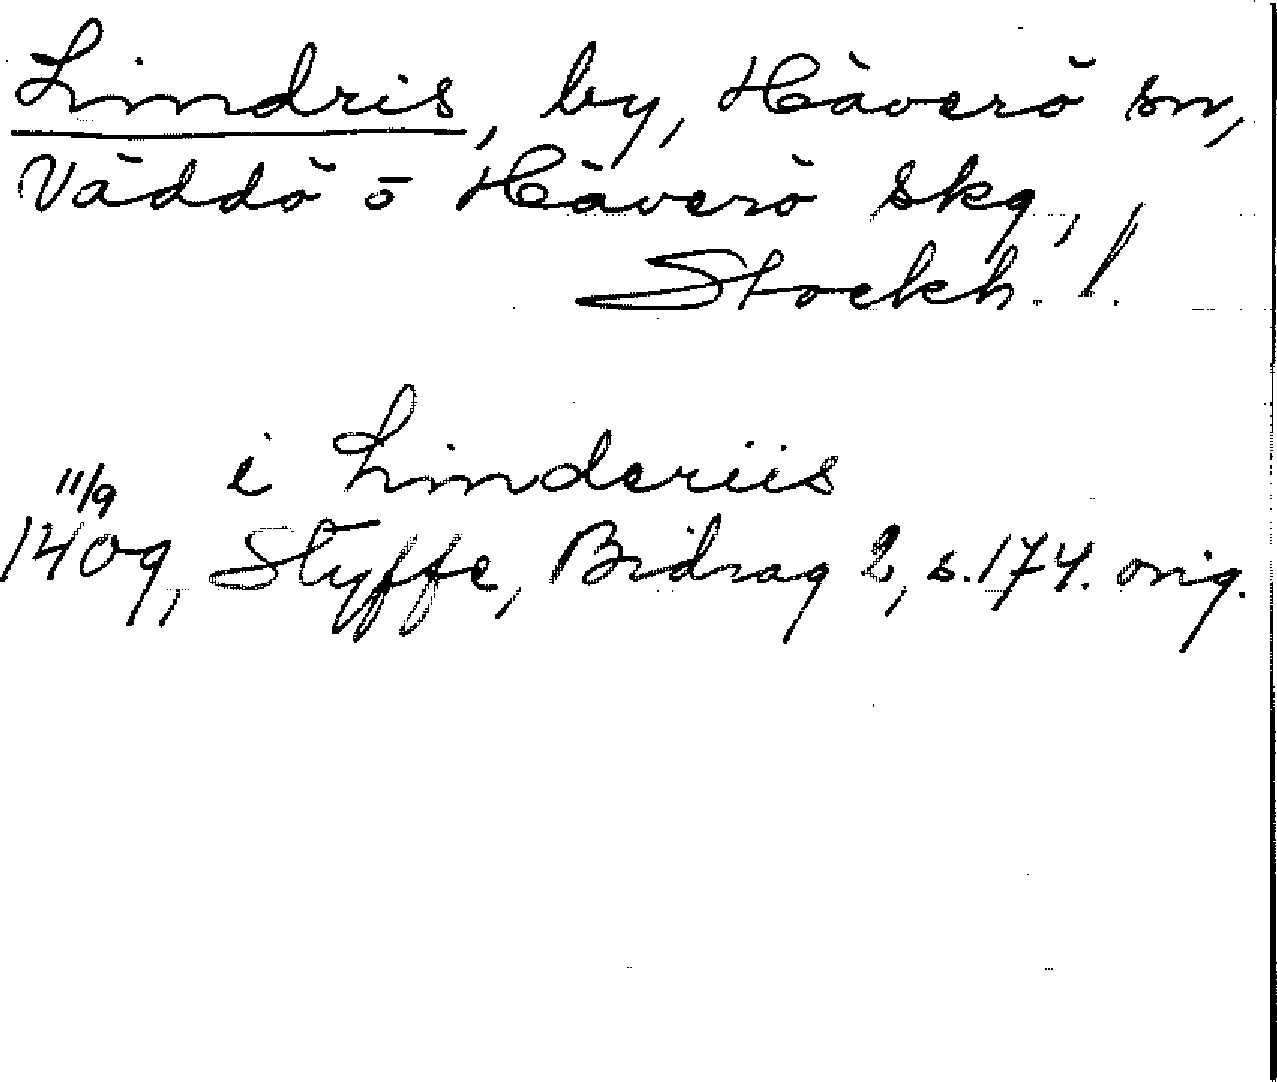 Lindris, by, Häverö sn,
Väddö o Häverö skg,
Stockh. l.
i Linderiis
11/9
1409, Styffe, Bidrag 2, s. 174. orig.